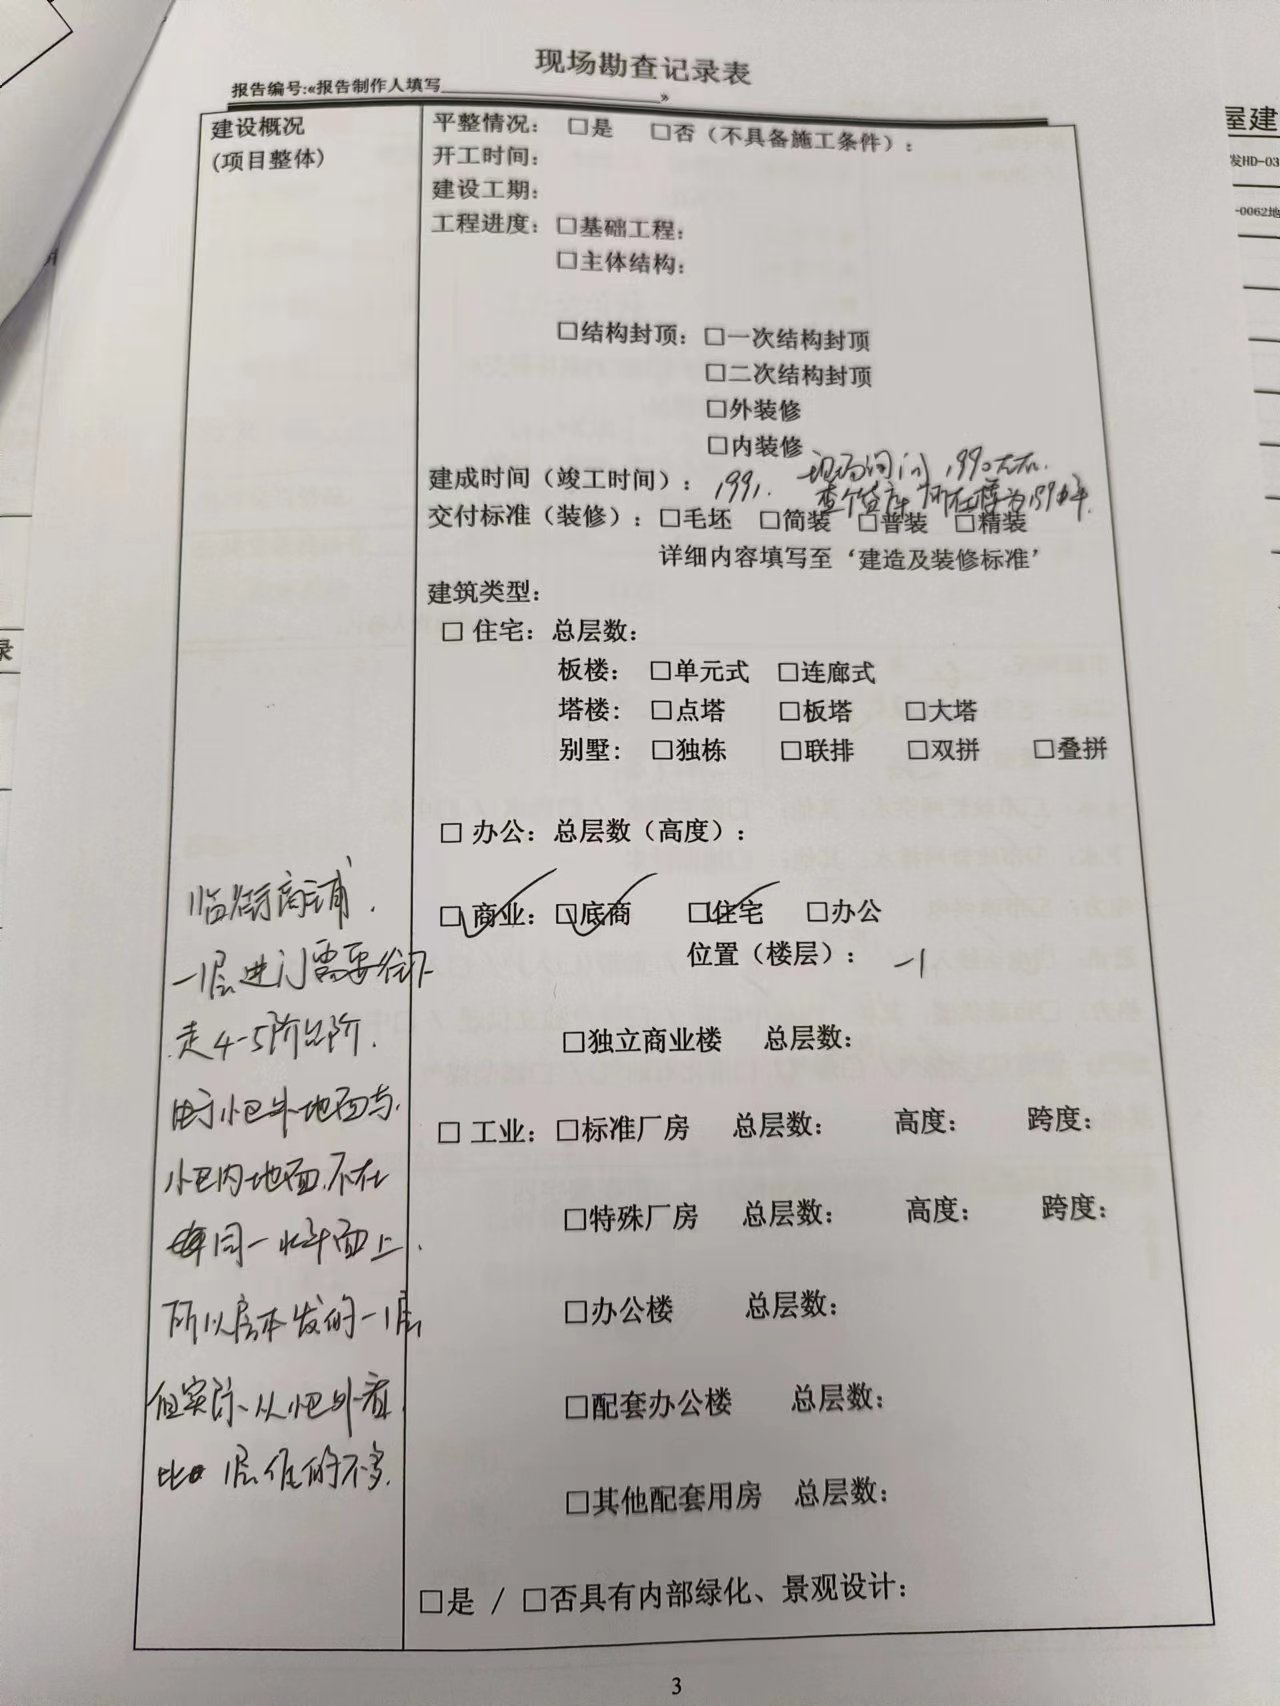 现场勘查记录表
报告编号:«报告制作人填写»
建设概况
(项目整体)
平整情况: □是 □否(不具备施工条件):
开工时间:
建设工期:
工程进度: □基础工程:
□主体结构:
□结构封顶: □一次结构封顶
□二次结构封顶
□外装修
□内装修
现场询问 1990左右.
建成时间(竣工时间): 1991.
交付标准(装修): □毛坯 □简装 □普装 □精装
详细内容填写至‘建造及装修标准’
建筑类型:
□ 住宅: 总层数:
板楼: □单元式 □连廊式
塔楼: □点塔 □板塔 □大塔
别墅: □独栋 □联排 □双拼 □叠拼
□ 办公: 总层数(高度):
□ 商业: □底商 □住宅 □办公
位置(楼层): -1
□独立商业楼 总层数:
□ 工业: □标准厂房 总层数: 高度: 跨度:
□特殊厂房 总层数: 高度: 跨度:
□办公楼 总层数:
□配套办公楼 总层数:
□其他配套用房 总层数:
□是 / □否具有内部绿化、景观设计:
临街商铺.
一层进门需要往下
走4-5阶台阶.
由于小区外地面与
小区内地面不在
同一水平面上.
所以房本发的一层
但实际从小区外看
比1层低的不多.
3
屋建
发HD-03
-0062地
录